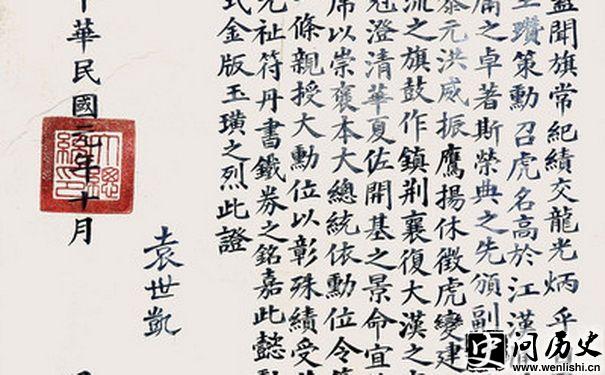 蓋聞旗常紀績交龍光炳乎
瓚策勳召虎名高於江漢
庸之卓著斯榮典之先頒副
元洪威振鷹揚休徵虎變建
流之旗鼓作鎮荊襄復大漢之
冠澄清華夏佐開基之景命宜
席以崇褒本大總統依勳位令
條親授大勳位以彰殊績受
元祉符丹書鐵券之銘嘉此懿
式金版玉璜之烈此證
袁世凱
中華民國二年十月
大總統印
问历史
www.wenlishi.cn